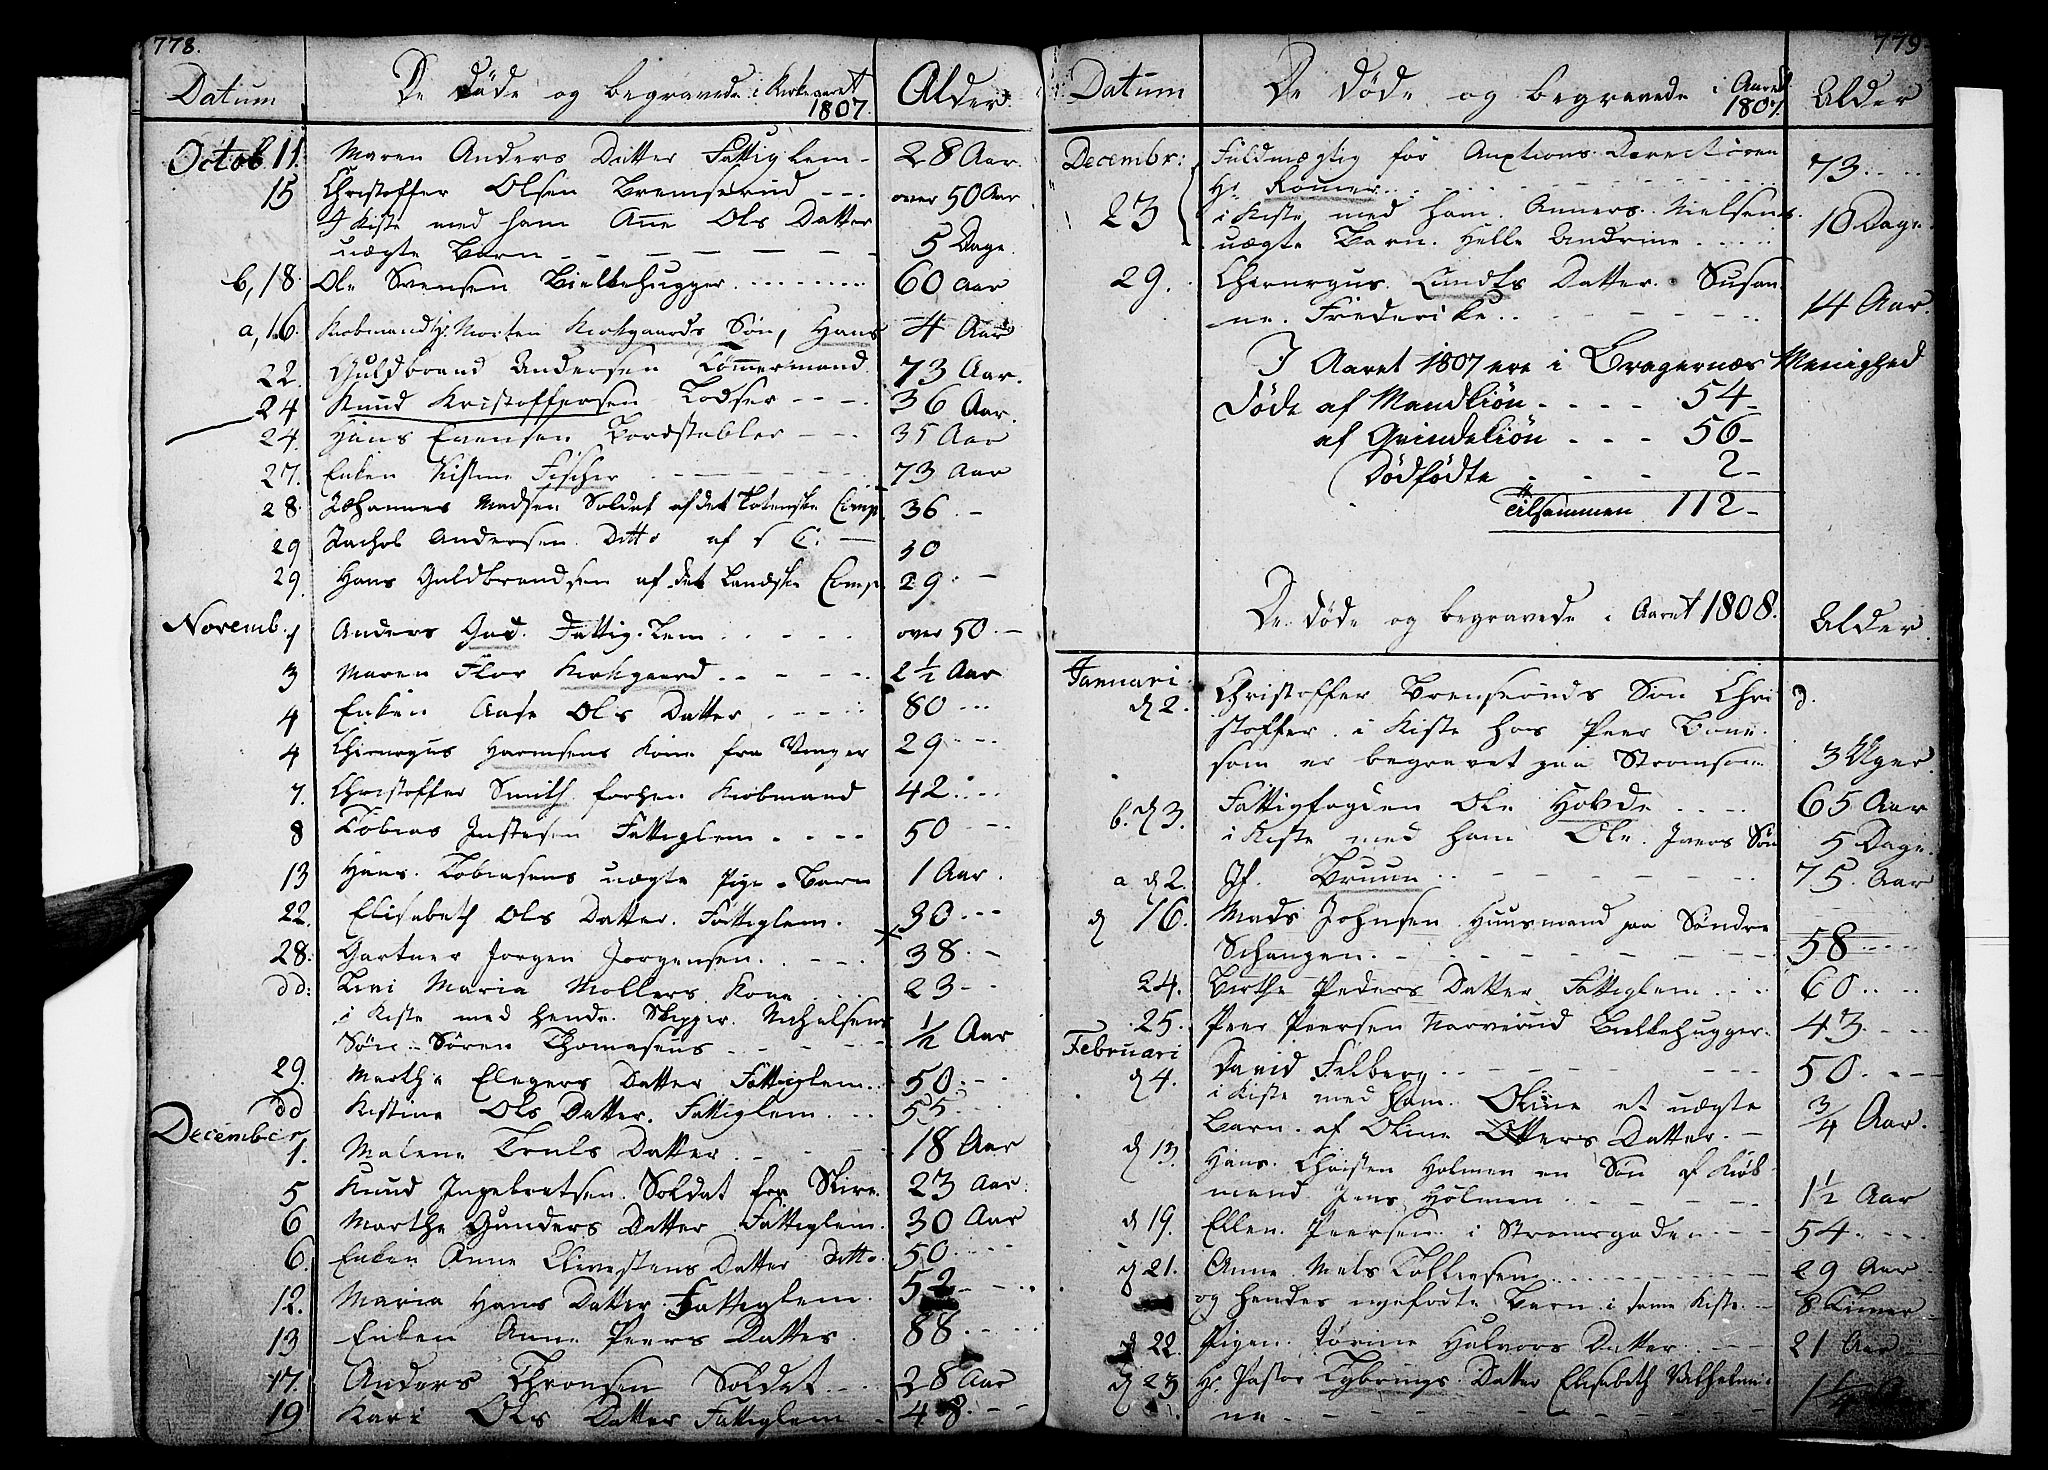 778.
Datum De døde og begravede i Kirkeaaret 1807. Alder
Octob 11 Maren Anders Datter Fattiglem - 28 Aar.
15 Christoffer Olsen Bremserud - - - over 50 Aar
I Kiste med ham Anne Ols Datter
uægte Barn - - - - - - 5 Dage.
b, 18. Ole Svensen Bielkehugger ........ 60 Aar
a, 16. Kiøbmand Hr Morten Kirkgaards Søn, Hans 4 Aar
22. Guldbrand Andersen Tømmermand 73 Aar.
24 Knud Kristoffersen Lodser - - - 36 Aar.
24. Hans Evensen Bordstabler - - - 35 Aar
27. Enken Kistine Fischer - - - - - 73 Aar
28. Johannes Madsen Soldat af det Totenske Comp. 36. -
29 Jachob Andersen Ditto af s C: - 30
29. Hans Guldbrandsen af det Landske Comp. 29. -
Novemb. 1 Anders Gad. Fattig-Lem - - - - over 50. -
3 Maren Flor Kirkgaard - - - - - 2 1/2 Aar
4 Enken Aase Ols Datter - - - - 80 ...
4 Chirurgus Harmsens Kone fra Vinger 29 - - -
7. Christoffer Smith forhen Kiøbmand 42 - - -
8 Tobias Justesen Fattiglem - - - - 50 - -
13 Hans Tobiasens uægte Pige-Barn 1 Aar.
22. Elisabeth Ols Datter. Fattiglem. 30 - - -
28. Gartner Jørgen Jørgensen. . - - - 38. -
dd: Levi Maria Møllers Kone . . . 23 - -
i Kiste med hende. Skipper. Michelsens
Søn - Søren Thomasens - - - - - 1/2 Aar
29. Marthe Elegers Datter Fattiglem. . 50. - -
dd Kistine Ols Datter. Fattiglem. . . . 55. . . .
December
1. Malene Truls Datter - - - - 18 Aar
5 Knud Ingebretsen. Soldat fra Skire. 23 Aar.
6 Marthe Gunders Datter Fattiglem. 30 Aar
6. Enken Anne Elivestens Datter Ditto. 50 - - -
12. Maria Hans Datter. Fattiglem. 52 - - -
13 Enken Anne Peers Datter 88 - - -
17. Anders Thronsen Soldat . . . 28 Aar
19. Kari Ols Datter Fattiglem - 48 - -
779
Datum De døde og begravede i Aaret 1807. Alder
Decembr: Fuldmægtig for Auxtions Directeuren
Hr Rømer. . . . . . 73. . . .
23 i Kiste med ham. Anners Nielsens
uægte Barn. Helle Andrine . . . . . 10 Dage.
29. Chirurgus. Lundts Datter. Susan
ne. Friderike. . - - - - - 14 Aar.
I Aaret 1807 ere i Bragernæs Menighed
døde af Mandkiøn - - - - 54 -
af Qvindekiøn - - - 56 -
Dødfødte - - - - 2 -
Tilsammen 112 -
De døde og begravede i Aaret 1808. Alder
Januari d 2. Christoffer Brenseruds Søn Chri
stoffer. i Kiste hos Peer
som er begravet paa Strømsøe 3 Uger.
b. d 3. Fattigfogden Ole Hovde . . - - 65 Aar
i Kiste med ham Ole. Ivers Søn 5 Dage.
a d 2. Jf. Bruun . . - - - - - - 75. Aar
d 16. Mads Johnsen Huusmand paa Søndre
Schanzen. - - - - - - - 58 - - -
24. Birthe Peders Datter. Fattiglem. . . . 60 . . . .
25. Peer Peersen Narverud Bielkehugger. 43 - - -
Februari
d 4. David Felberg - - - - - - - 50. - - -
i Kiste med ham. Oline et uægte
Barn. af Oline Otters Datter. - 3/4 Aar.
d 13. Hans. Christen Holmen en Søn af Kiøb
mand Jens Holmen - - - - - 1 1/2 Aar
d 19. Ellen. Peersen. i Strømsgaden. - - 54. - - -
d 21. Anne Niels Tollevsen . . . . 29 Aar
og hendes nyefødte Barn i samme Kiste. - 8 Timer
d 22. Pigen. Jørine Halvors Datter. . - - 21 Aar
d 23 Hr Pastor Tybrings. Datter Elisabeth Vilhelmi
ne - - - - - - - 1 1/4 Aar